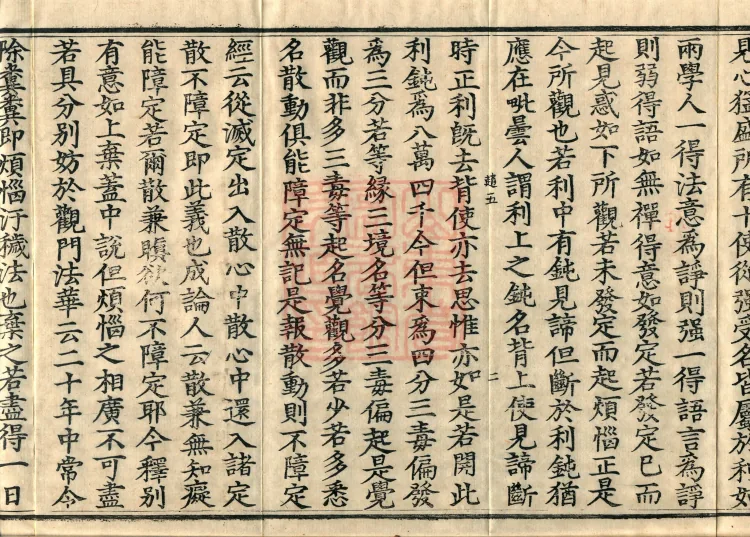 見心猛盛所有十使從強受名皆屬於利如
兩學人一得法意為諍則强一得語言為諍
則弱得語如無禪得意如發定若發定已而
起見惑如下所觀若未發定而起煩惱正是
今所觀也若利中有鈍見諦但斷於利鈍猶
應在毗曇人謂利上之鈍名背上使見諦斷
遣五
二
時正利旣去背使亦去思惟亦如是若開此
利鈍爲八萬四千今但束爲四分三毒偏發
爲三分若等緣三境名等分三毒偏起是覺
觀而非多三毒等起名覺觀多若少若多悉
名散動俱能障定無記是報散動則不障定
經云從滅定出入散心中散心中還入諸定
散不障定即此義也成論人云散兼無知癡
能障定若爾散兼瞋欲何不障定耶今釋別
有意如上棄蓋中說但煩惱之相廣不可盡
若具分別妨於觀門法華云二十年中常令
除糞糞即煩惱汙穢法也棄之若盡得一日